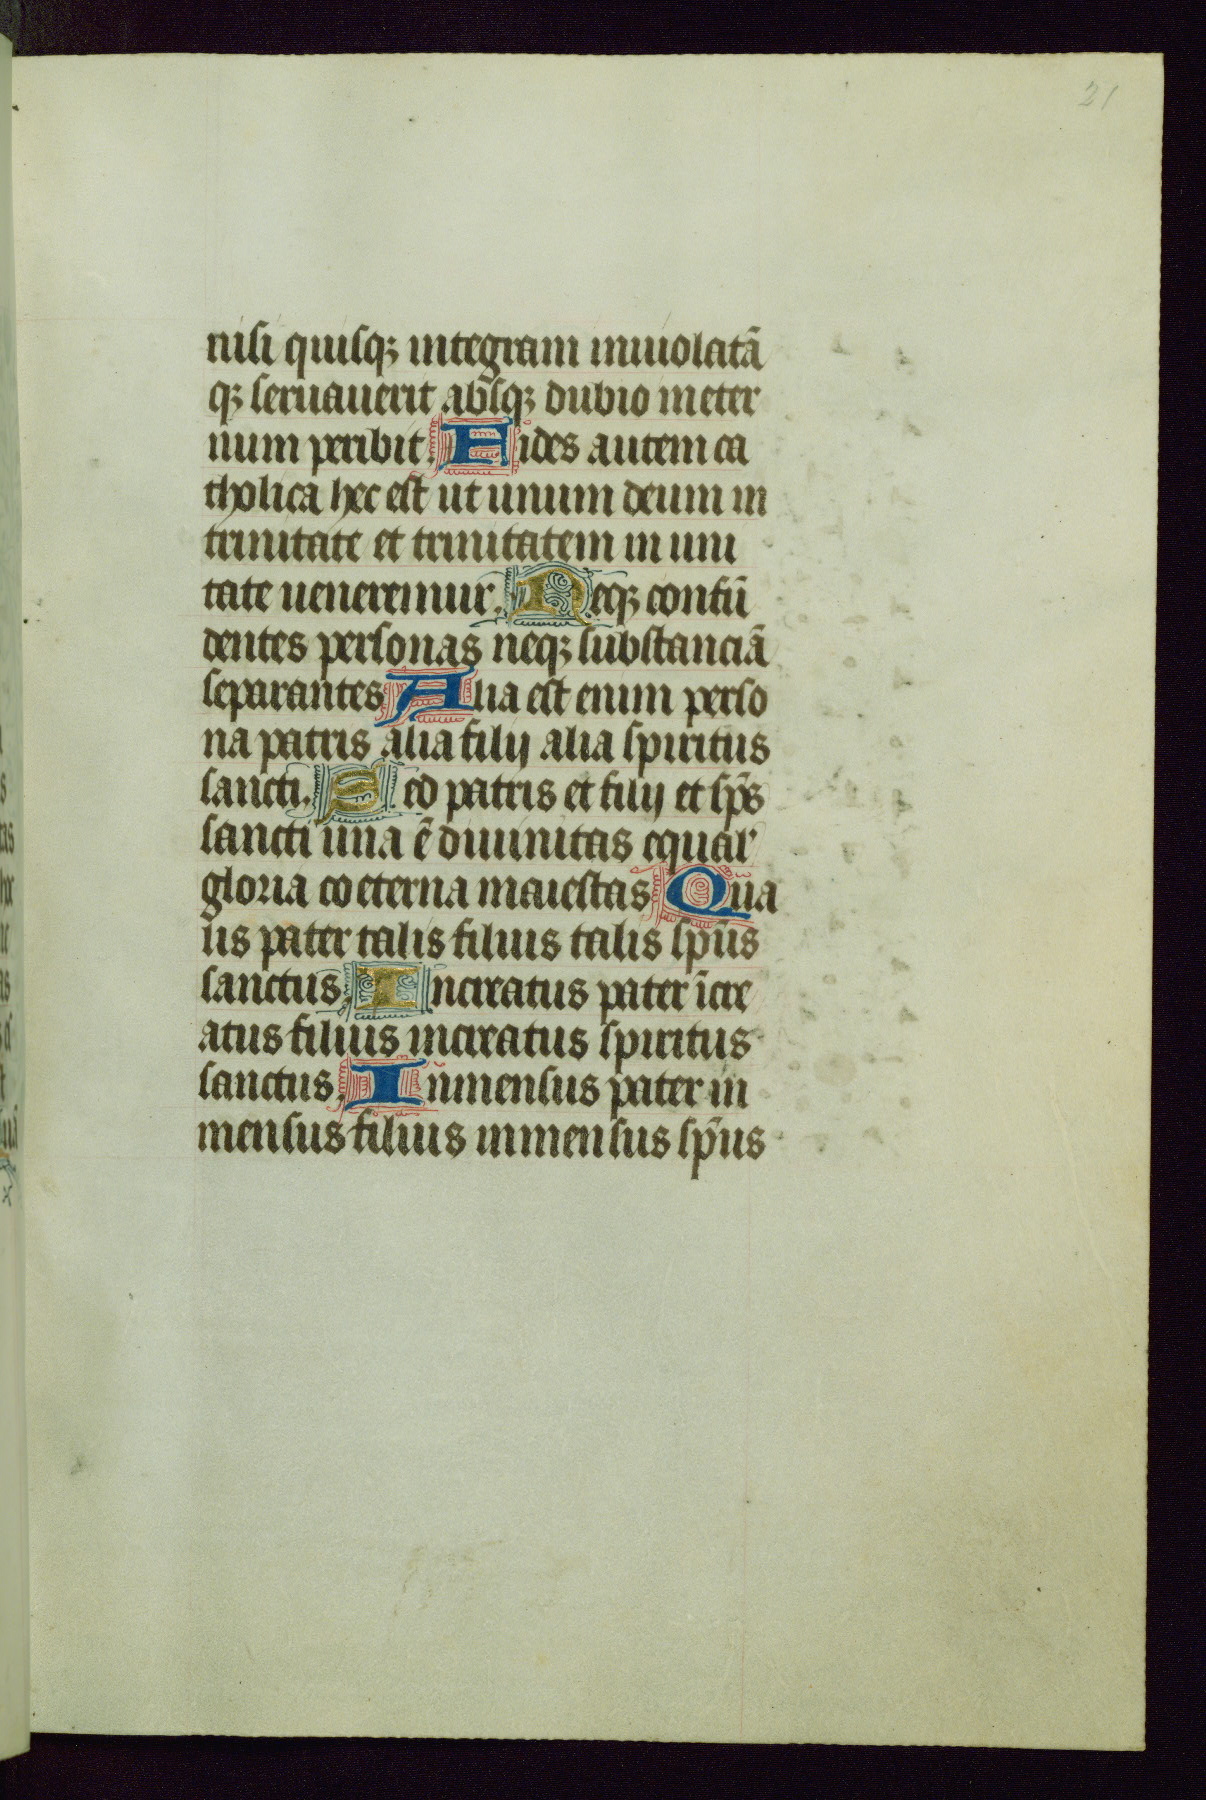 21
nisi quisqꝫ integram inuiolatā
qꝫ seruauerit absqꝫ dubio in eter
num peribit. Fides autem ca
tholica hec est ut unum deum in
trinitate et trinitatem in uni
tate ueneremur. Neqꝫ confū
dentes personas neqꝫ substanciā
separantes Alia est enim perso
na patris alia filij alia spiritus
sancti. Sed patris et filij et sp̄s
sancti una ē diuinitas equal'
gloria coeterna maiestas Qua
lis pater talis filius talis sp̄us
sanctus. Increatus pater īcre
atus filius increatus spiritus
sanctus. Inmensus pater in
mensus filius inmensus sp̄us